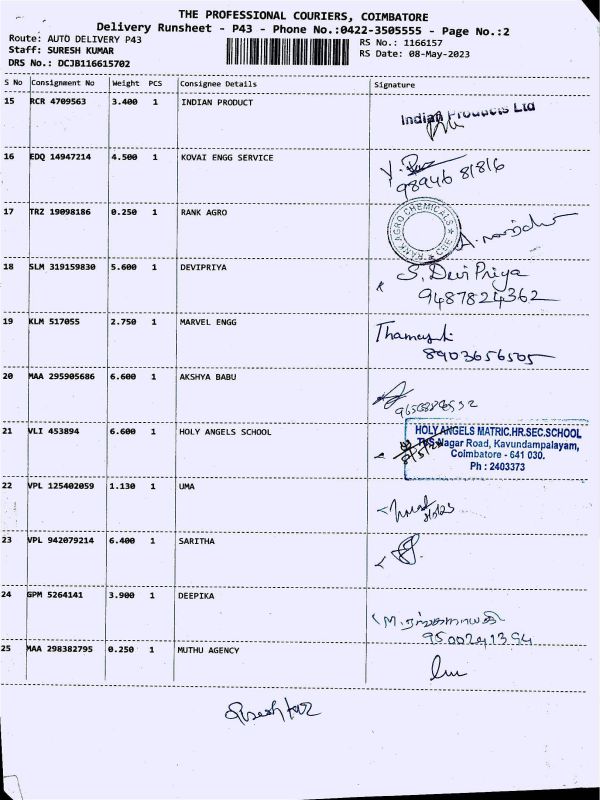 THE PROFESSIONAL COURIERS, COIMBATORE
Delivery Runsheet - P43 - Phone No.:0422-3505555 - Page No.:2
Route: AUTO DELIVERY P43 RS No.: 1166157
Staff: SURESH KUMAR RS Date: 08-May-2023
DRS No.: DCJB116615702
S No Consignment No Weight PCS Consignee Details Signature
15 RCR 4709563 3.400 1 INDIAN PRODUCT
Indian Products Ltd
16 EDQ 14947214 4.500 1 KOVAI ENGG SERVICE
98946 81816
17 TRZ 19098186 0.250 1 RANK AGRO
RANK AGRO CHEMICALS ★ CBE ★
18 SLM 319159830 5.600 1 DEVIPRIYA
S. Devi Priya
9487824362
19 KLM 517055 2.750 1 MARVEL ENGG
8903656505
20 MAA 295905686 6.600 1 AKSHYA BABU
21 VLI 453894 6.600 1 HOLY ANGELS SCHOOL
HOLY ANGELS MATRIC.HR.SEC.SCHOOL
TVS Nagar Road, Kavundampalayam,
Coimbatore - 641 030.
Ph : 2403373
22 VPL 125402059 1.130 1 UMA
23 VPL 942079214 6.400 1 SARITHA
24 GPM 5264141 3.900 1 DEEPIKA
9500241394
25 MAA 298382795 0.250 1 MUTHU AGENCY